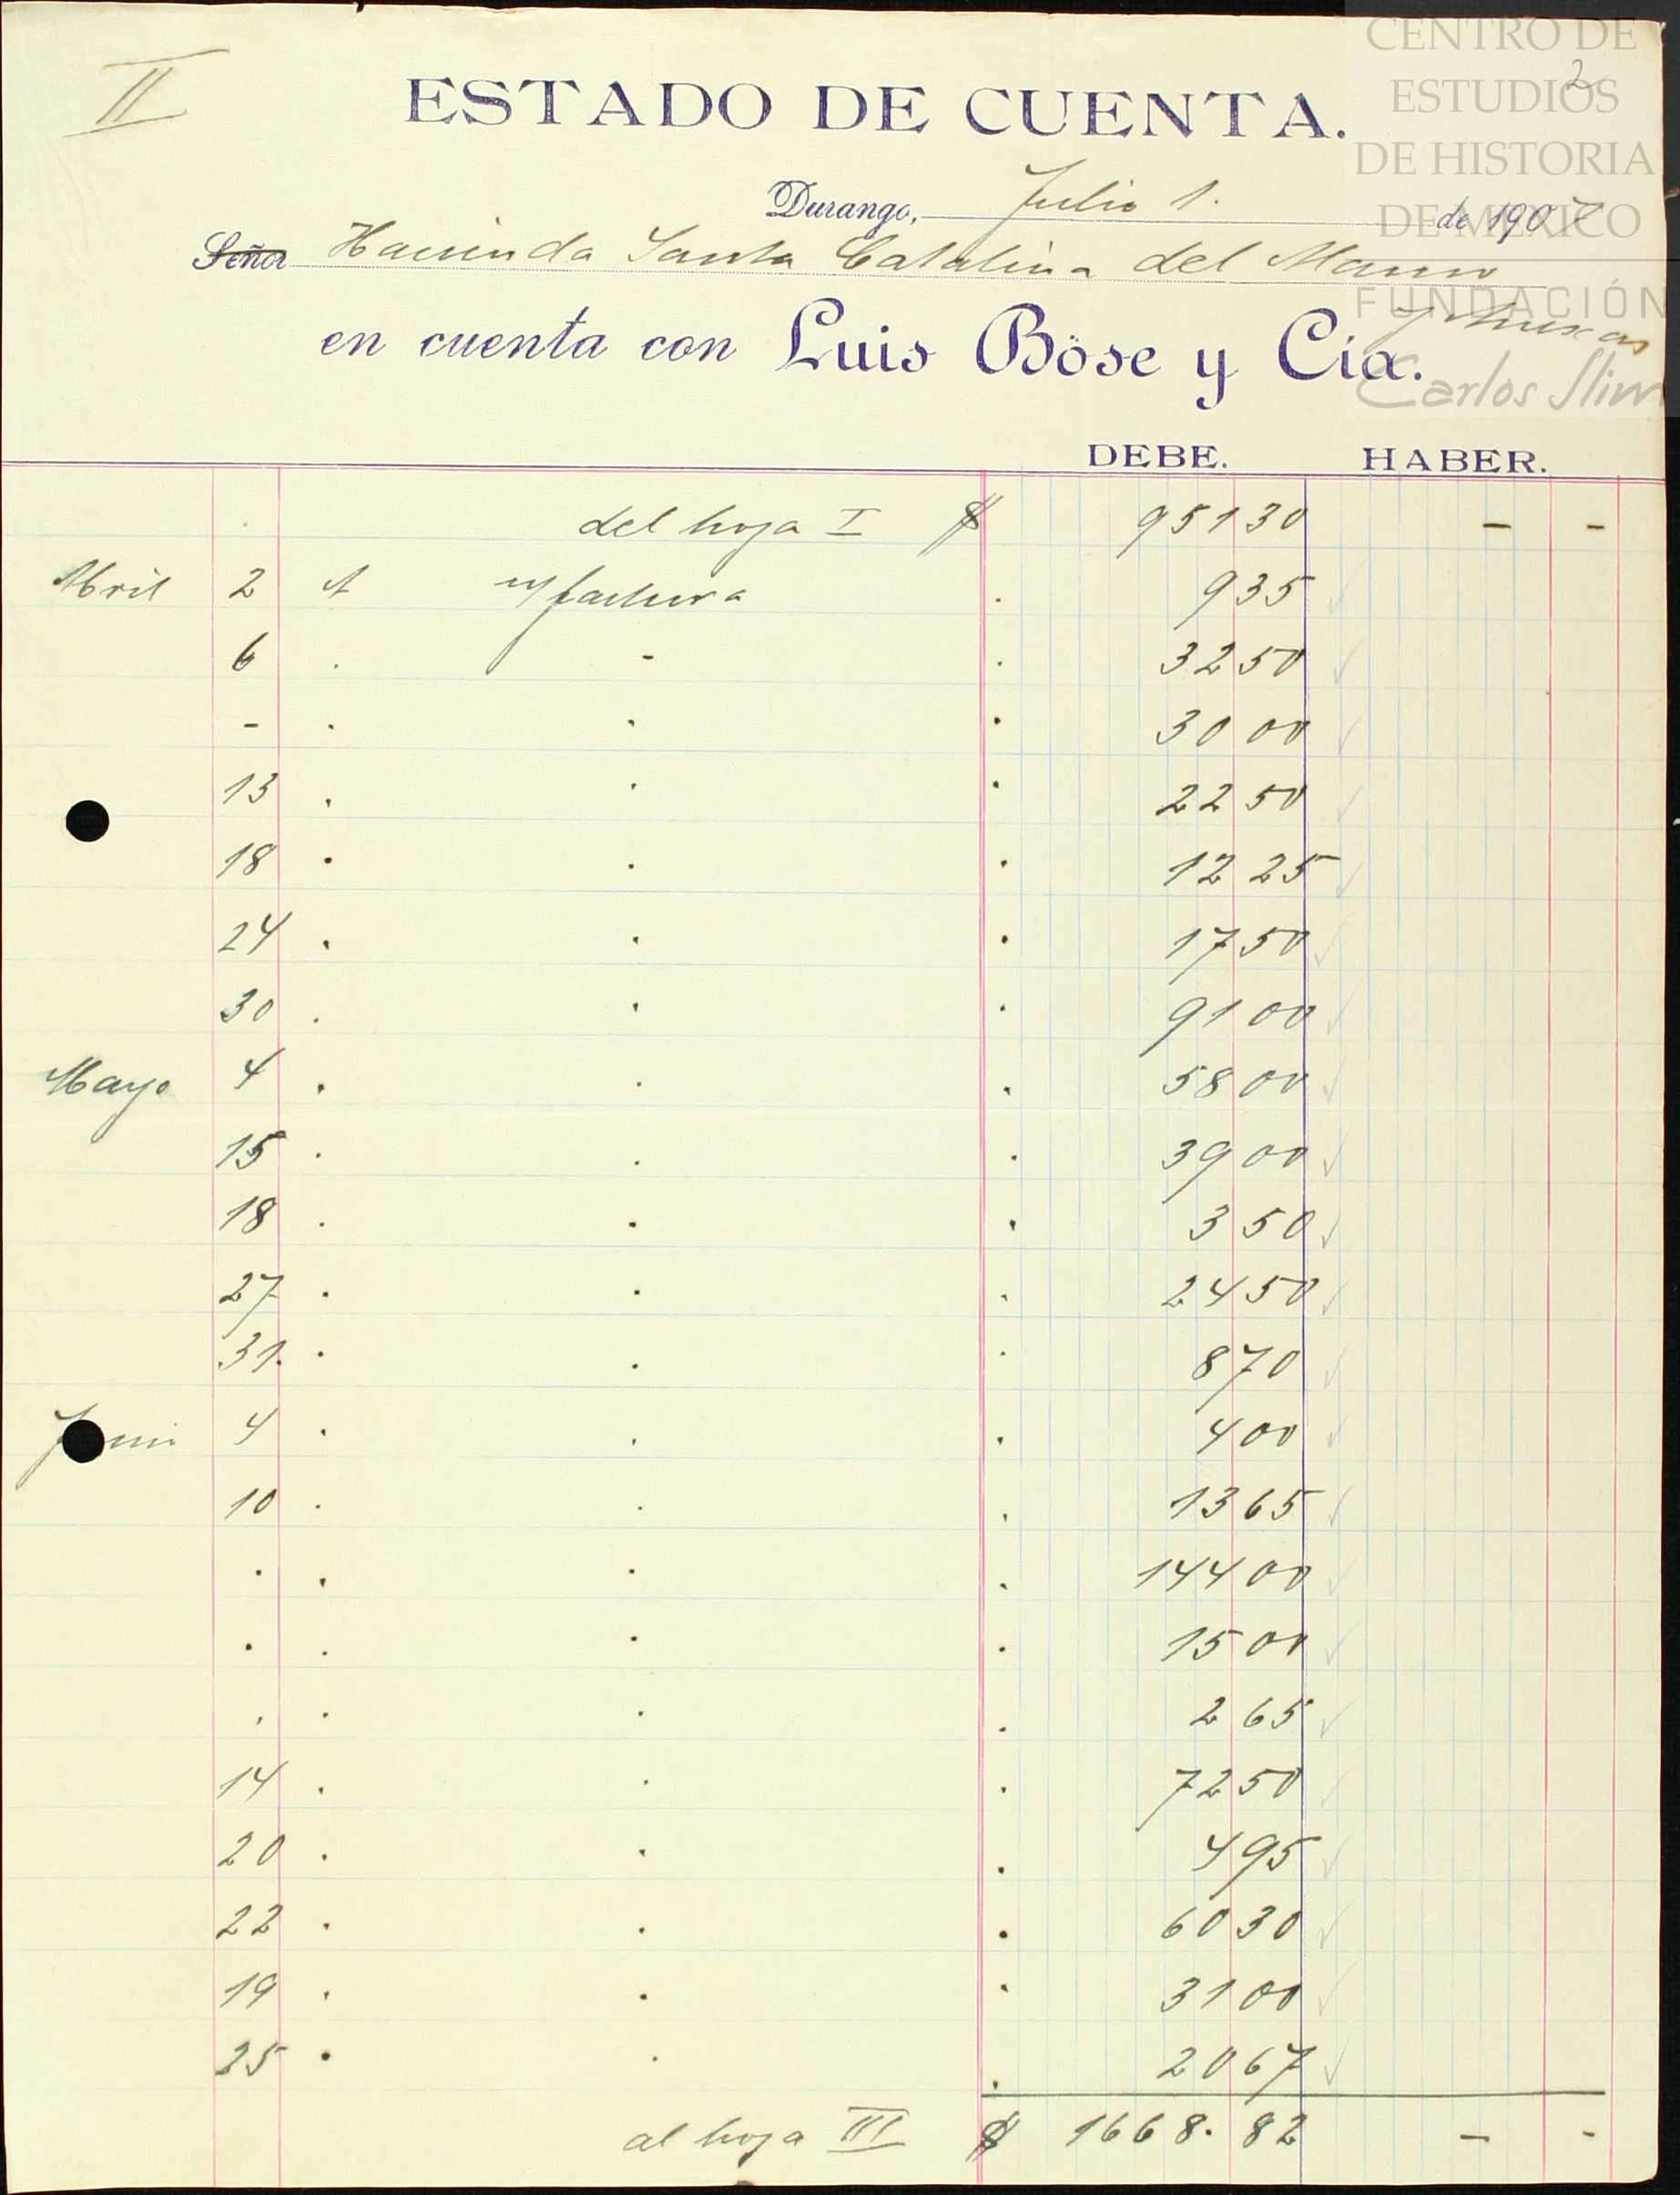 II
2
ESTADO DE CUENTA.
Durango, Julio 1. de 1907
Señor Hacienda Santa Catalina del Alamo
y Anexas
en cuenta con Luis Böse y Cía.
DEBE. HABER.
del hoja I $ 951 30 - -
Abril 2 A n/factura . 9 35
6 . - . 32 50
- . . . 30 00
13 . . . 22 50
18 . . . 12 25
24 . . . 17 50
30 . . . 91 00
Mayo 4 . . . 58 00
15 . . . 39 00
18 . . . 3 50
27 . . . 24 50
31. . . . 8 70
4 . . . 4 00
10 . . . 13 65
. . . . 144 00
. . . . 15 00
. . . . 2 65
14 . . . 72 50
20 . . . 4 95
22 . . . 60 30
19 . . . 31 00
25 . . . 20 67
al hoja III $ 1668. 82 - -
CENTRO DE
ESTUDIOS
DE HISTORIA
DE MÉXICO
FUNDACIÓN
Carlos Slim